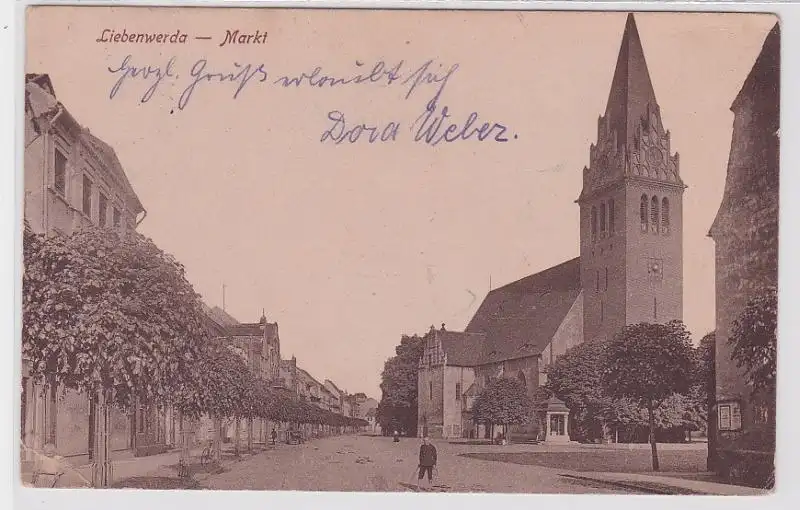 Liebenwerda — Markt
Herzl. Gruß erlaubt sich
Dora Weber.